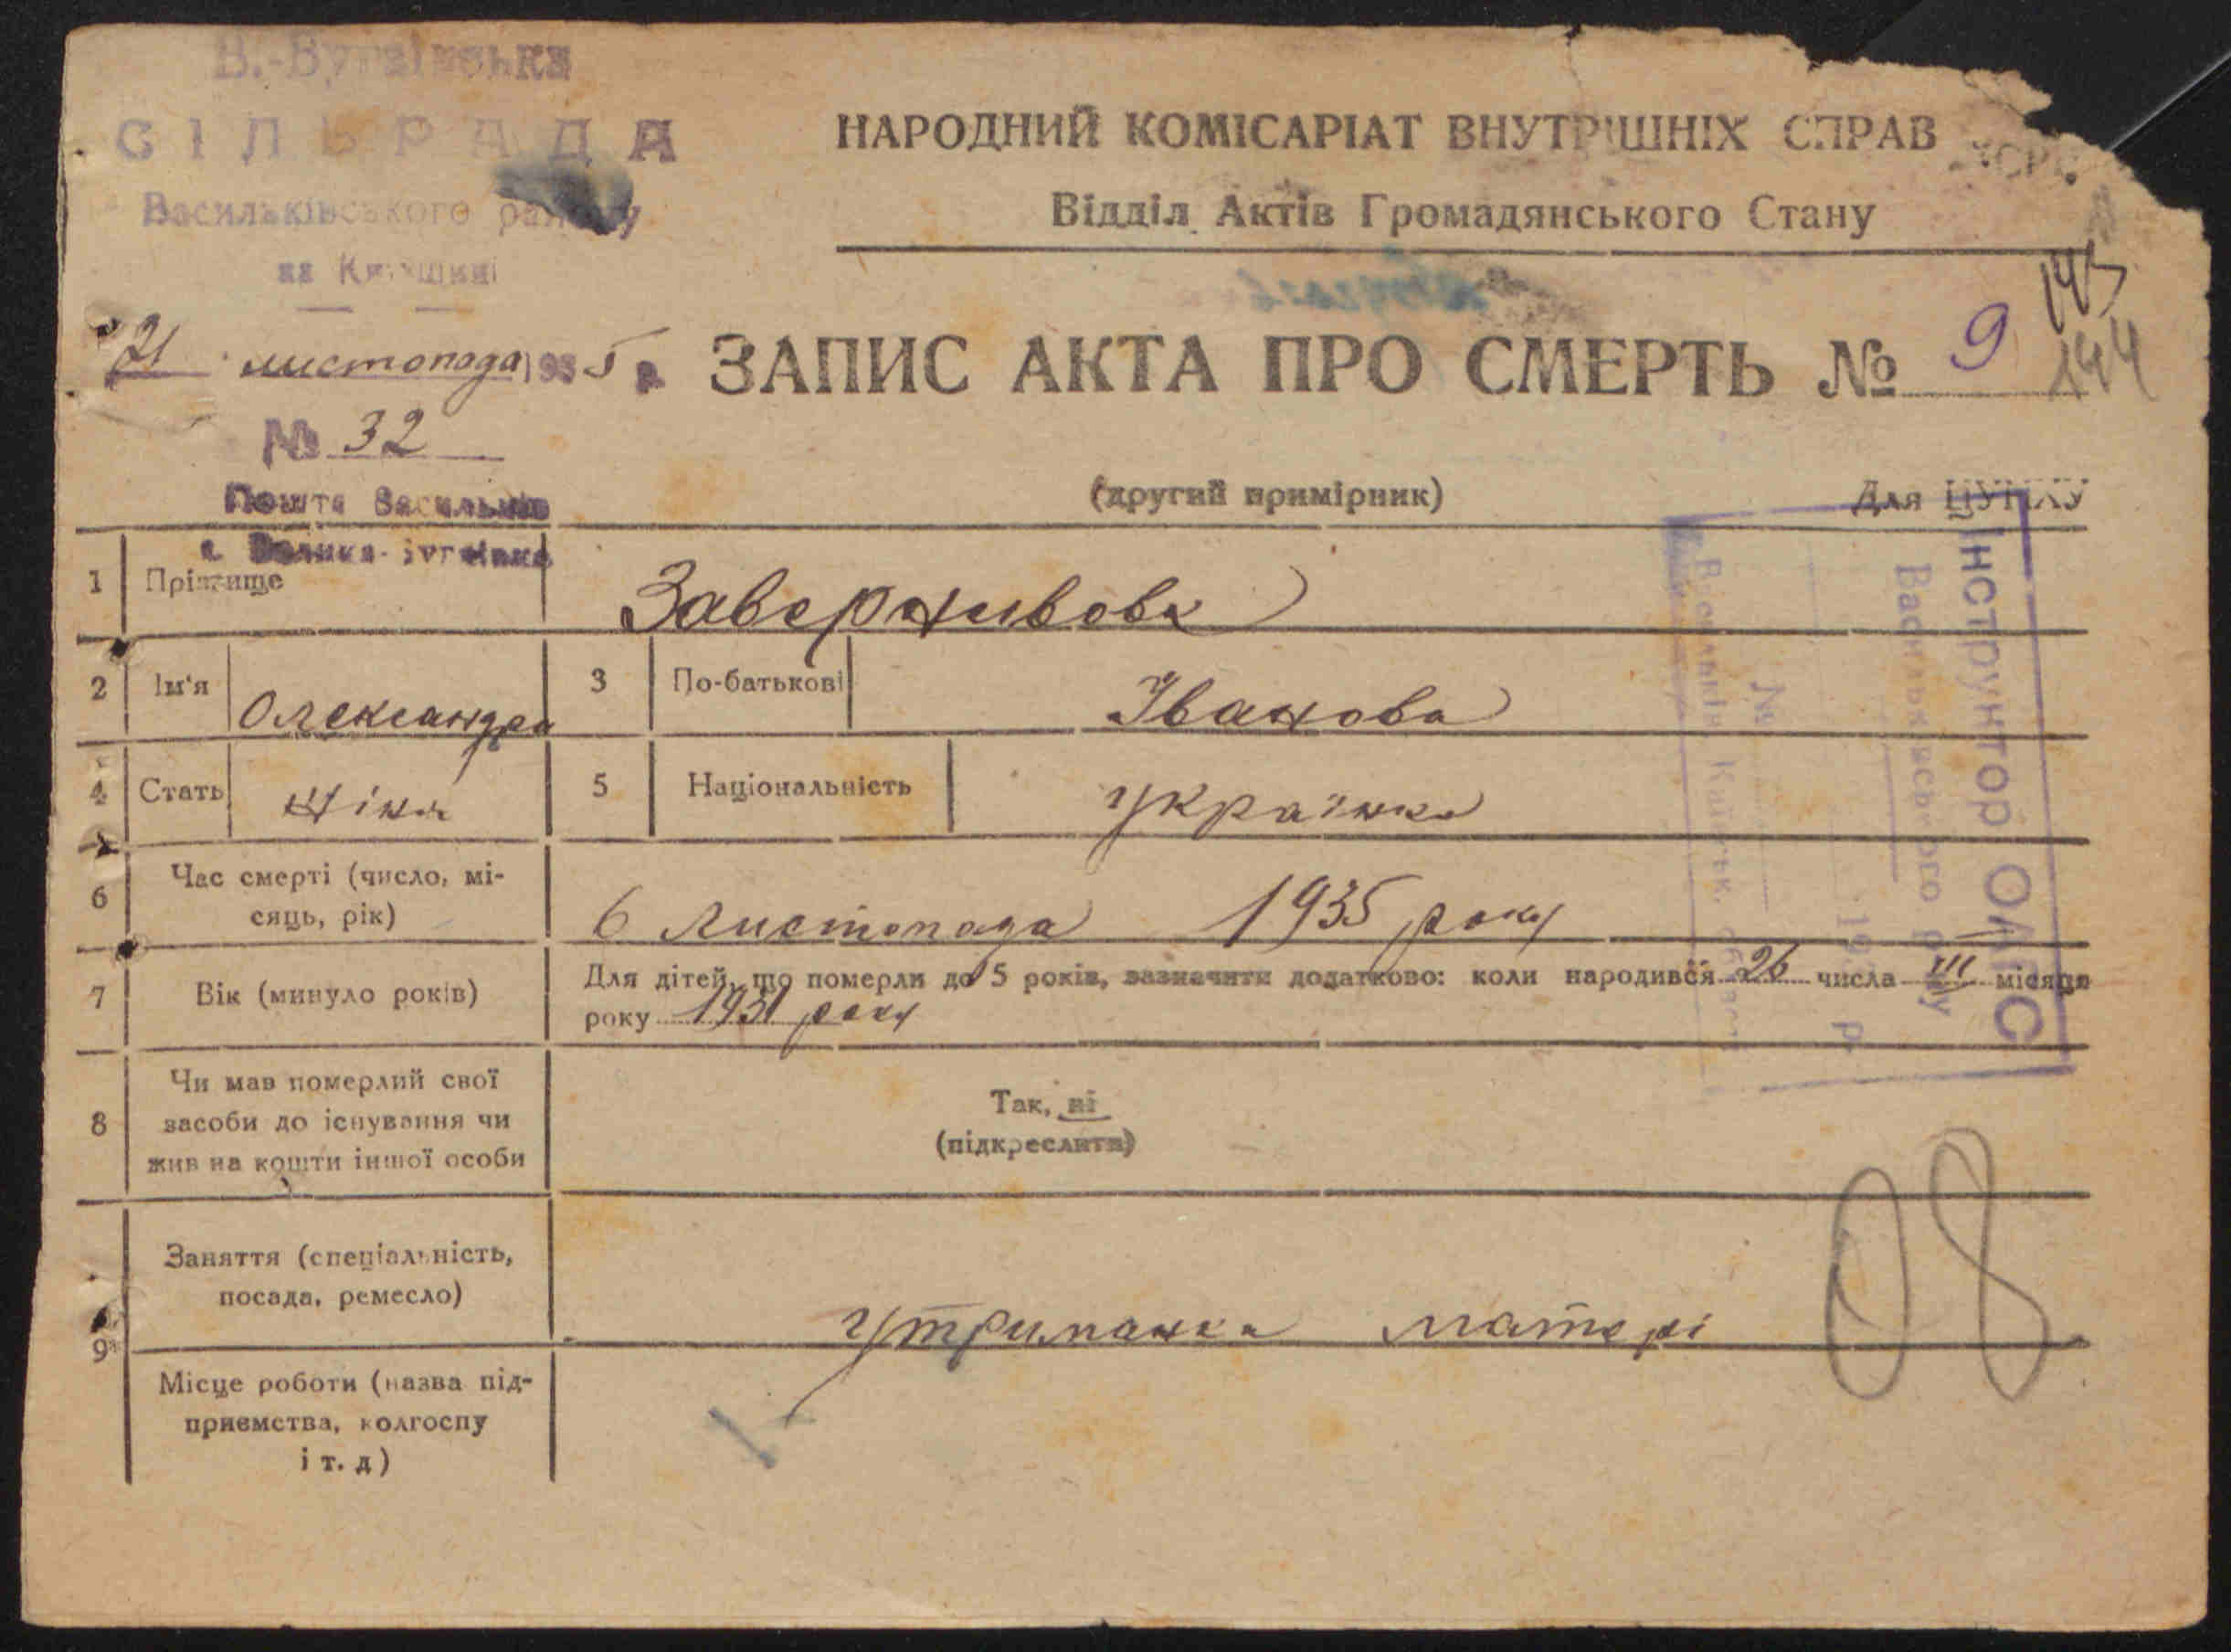 В.-Бугаївська
СІЛЬРАДА
Васильківського району
на Київщині
21 листопада 1935 р.
№ 32
Пошта Васильків
с. Велика-Бугаївка
НАРОДНИЙ КОМІСАРІАТ ВНУТРІШНІХ СПРАВ УСРР
Відділ Актів Громадянського Стану
143
ЗАПИС АКТА ПРО СМЕРТЬ № 9
144
(другий примірник)
Для ЦУНХУ
1 Прізвище
2 Ім'я Олександра 3 По-батькові Іванова
4 Стать Жіноча 5 Національність українка
6 Час смерті (число, мі-
сяць, рік) 6 Листопада 1935 року
7 Вік (минуло років) Для дітей, що померли до 5 років, зазначити додатково: коли народився 26 числа III місяця
року 1931 року
8 Чи мав померлий свої
засоби до існування чи
жив на кошти іншої особи
Так, ні
(підкреслити)
9 Заняття (спеціальність,
посада, ремесло) Утриманка матері
Місце роботи (назва під-
приємства, колгоспу
і т. д)
08
Інструктор ОАГС
Васильківського р-ну
№
19 р.